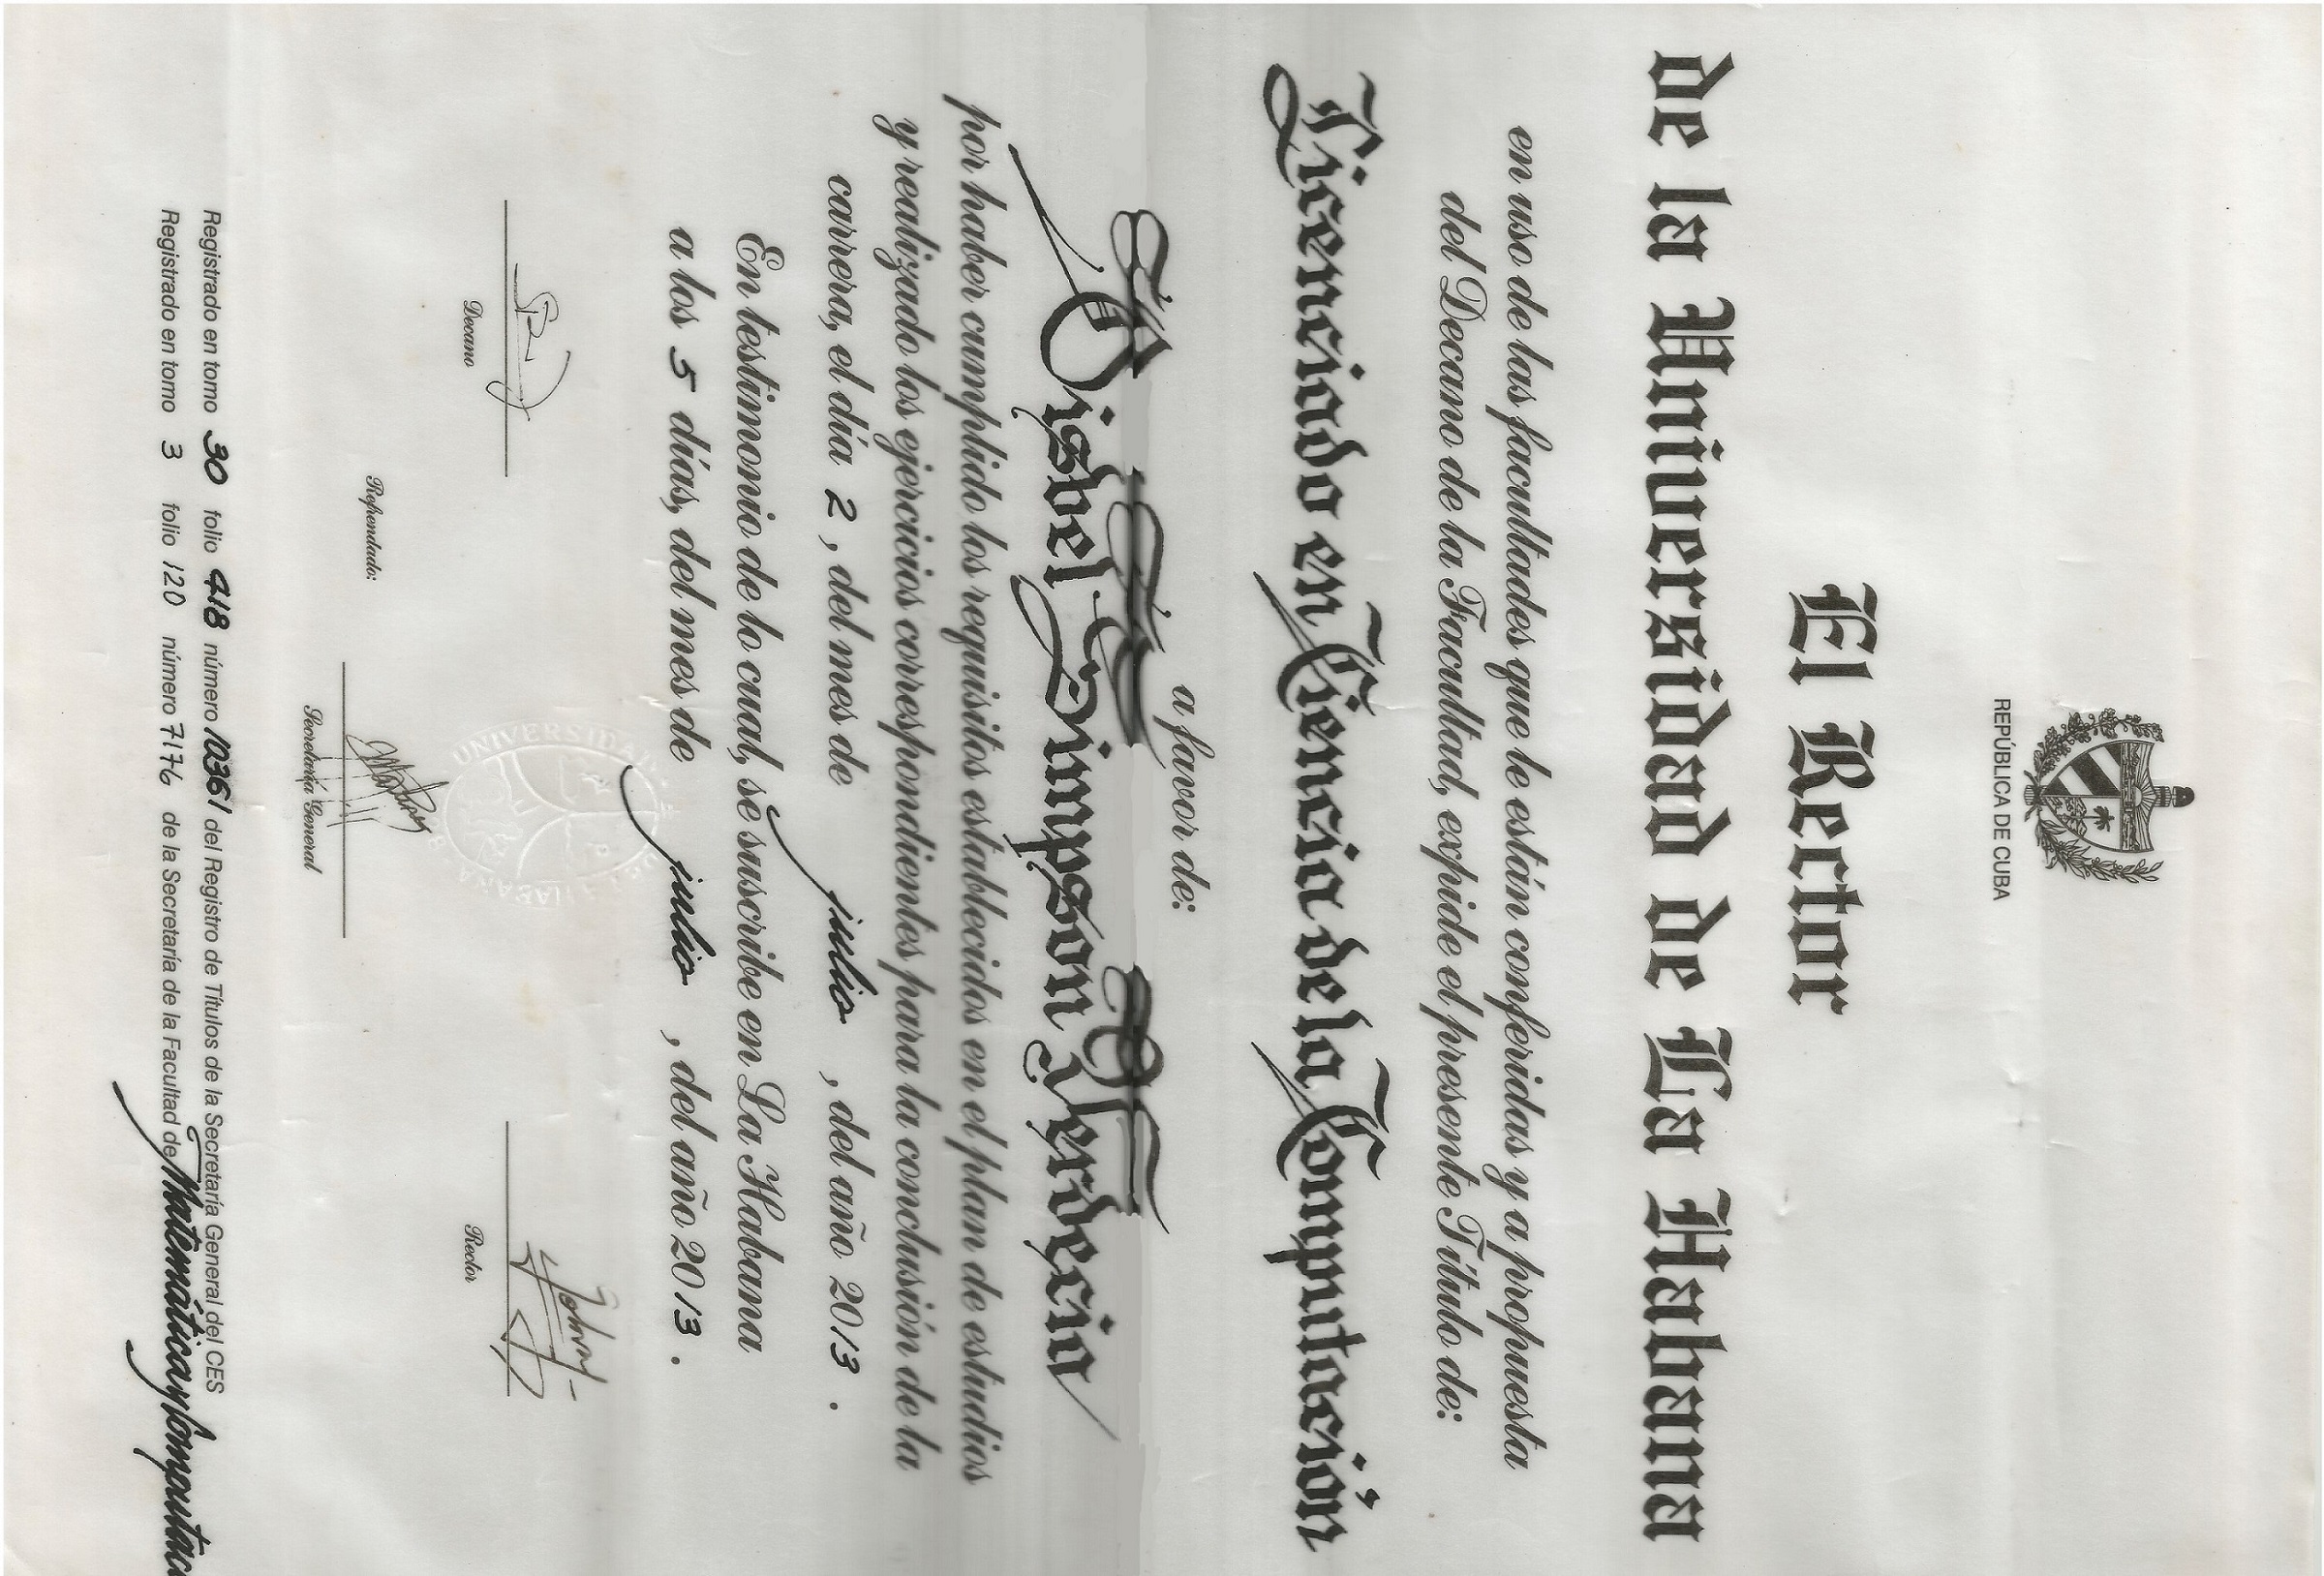 REPÚBLICA DE CUBA
El Rector
de la Universidad de La Habana
en uso de las facultades que le están conferidas y a propuesta
del Decano de la Facultad, expide el presente Título de:
Licenciado en Ciencia de la Computación
a favor de:
Disbel Simpson Verdecia
por haber cumplido los requisitos establecidos en el plan de estudios
y realizado los ejercicios correspondientes para la conclusión de la
carrera, el día 2, del mes de julio, del año 2013.
En testimonio de lo cual, se suscribe en La Habana
a los 5 días, del mes de julio, del año 2013.
Decano
Rector
Refrendado:
Secretaría General
Registrado en tomo 30 folio 418 número 10361 del Registro de Títulos de la Secretaría General del CES
Registrado en tomo 3 folio 120 número 7176 de la Secretaría de la Facultad de Matemática y Computac